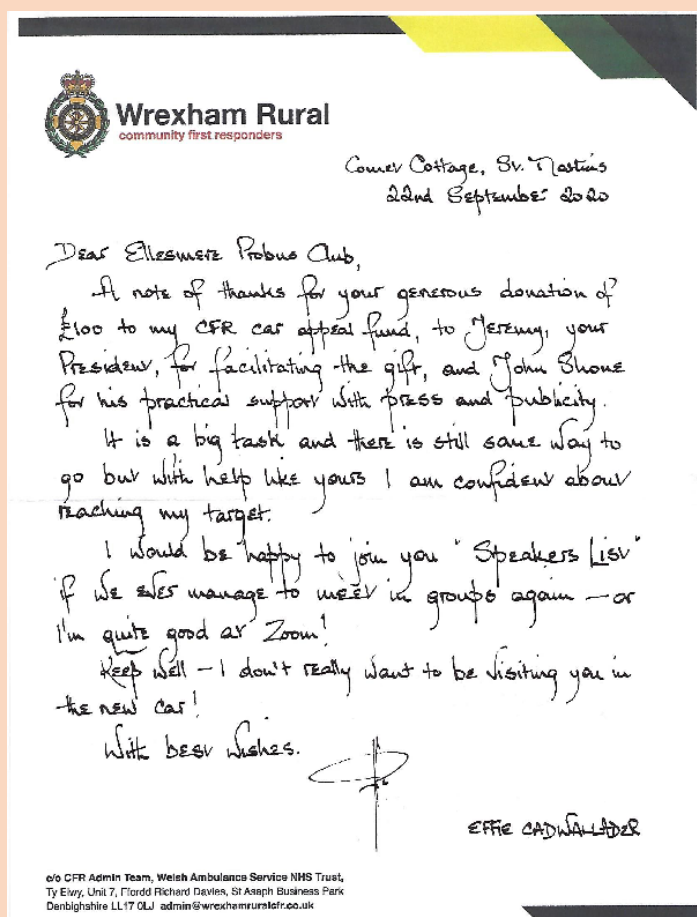 Wrexham Rural
community first responders
Corner Cottage, St. Martins
22nd September 2020
Dear Ellesmere Probus Club,
A note of thanks for your generous donation of
£100 to my CFR car appeal fund, to Jeremy, your
President, for facilitating the gift, and John Shone
for his practical support with press and publicity.
It is a big task and there is still some way to
go but with help like yours I am confident about
reaching my target.
I would be happy to join you "Speakers List"
if we ever manage to meet in groups again – or
I'm quite good at Zoom!
Keep well – I don't really want to be visiting you in
the new car!
With best wishes.
EFFIE CADWALLADER
c/o CFR Admin Team, Welsh Ambulance Service NHS Trust,
Ty Elwy, Unit 7, Ffordd Richard Davies, St Asaph Business Park
Denbighshire LL17 0LJ admin@wrexhamruralcfr.co.uk